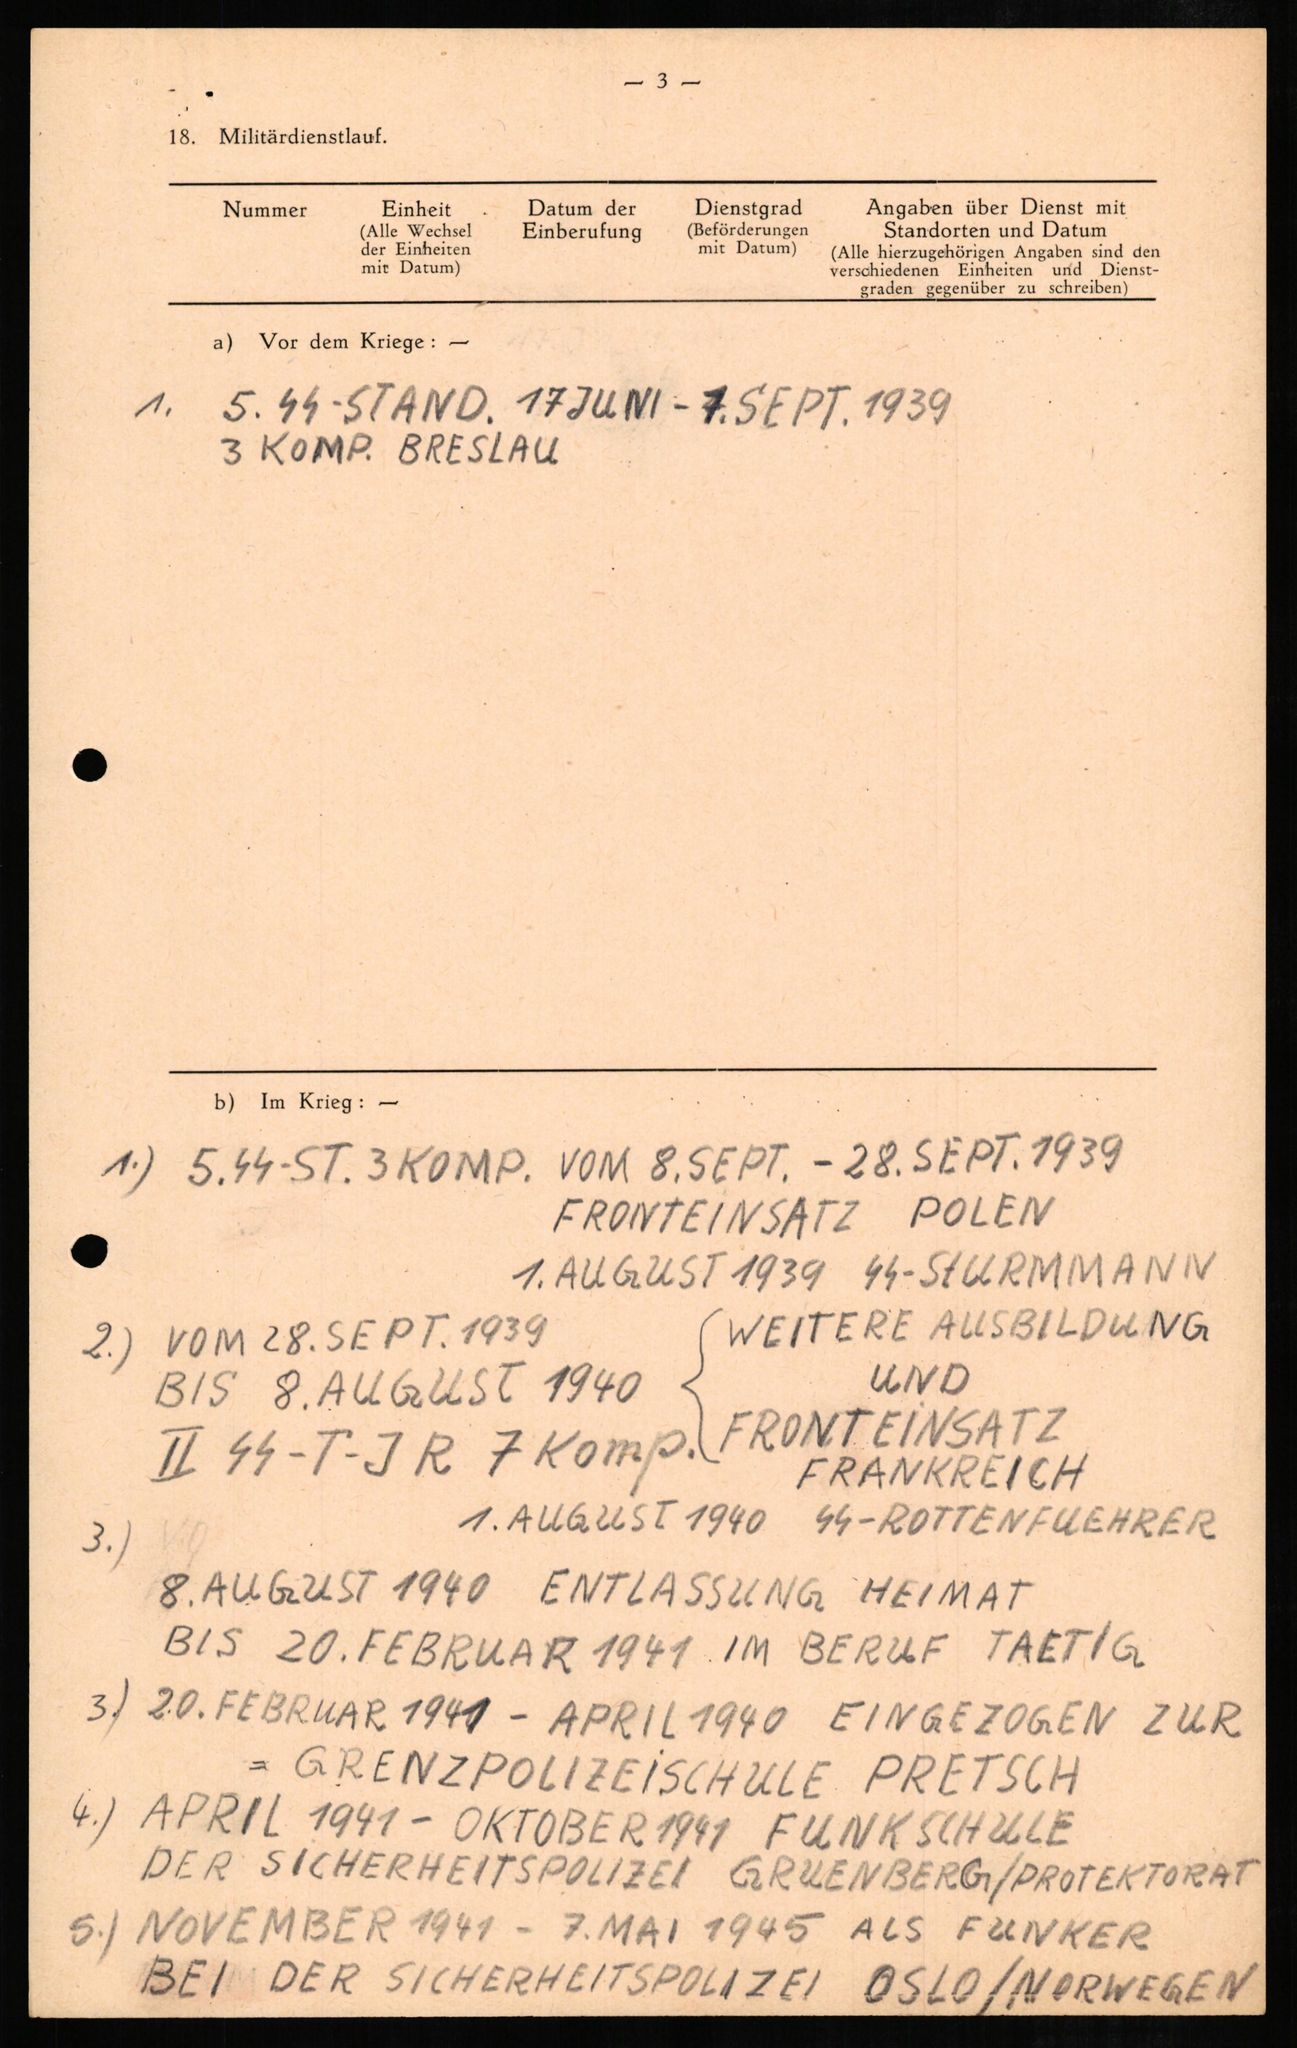 — 3 —
18. Militärdienstlauf.
Nummer
Einheit
(Alle Wechsel
der Einheiten
mit Datum)
Datum der
Einberufung
Dienstgrad
(Beförderungen
mit Datum)
Angaben über Dienst mit
Standorten und Datum
(Alle hierzugehörigen Angaben sind den
verschiedenen Einheiten und Dienst-
graden gegenüber zu schreiben)
a) Vor dem Kriege: —
1. 5. SS-STAND. 17 JUNI - 1. SEPT. 1939
3 KOMP. BRESLAU
b) Im Krieg: —
1.) 5. SS-ST. 3 KOMP. VOM 8. SEPT. - 28. SEPT. 1939
FRONTEINSATZ POLEN
1. AUGUST 1939 SS-StURMMANN
2.) VOM 28. SEPT. 1939
BIS 8. AUGUST 1940
II SS-T-JR 7 Komp.
WEITERE AUSBILDUNG
UND
FRONTEINSATZ
FRANKREICH
1. AUGUST 1940 SS-ROTTENFUEHRER
3.)
8. AUGUST 1940 ENTLASSUNG HEIMAT
BIS 20. FEBRUAR 1941 IM BERUF TAETIG
3.) 20. FEBRUAR 1941 - APRIL 1940 EINGEZOGEN ZUR
= GRENZPOLIZEISCHULE PRETSCH
4.) APRIL 1941 - OKTOBER 1941 FUNKSCHULE
DER SICHERHEITSPOLIZEI GRUENBERG/PROTEKTORAT
5.) NOVEMBER 1941 - 7. MAI 1945 ALS FUNKER
BEI DER SICHERHEITSPOLIZEI OSLO/NORWEGEN